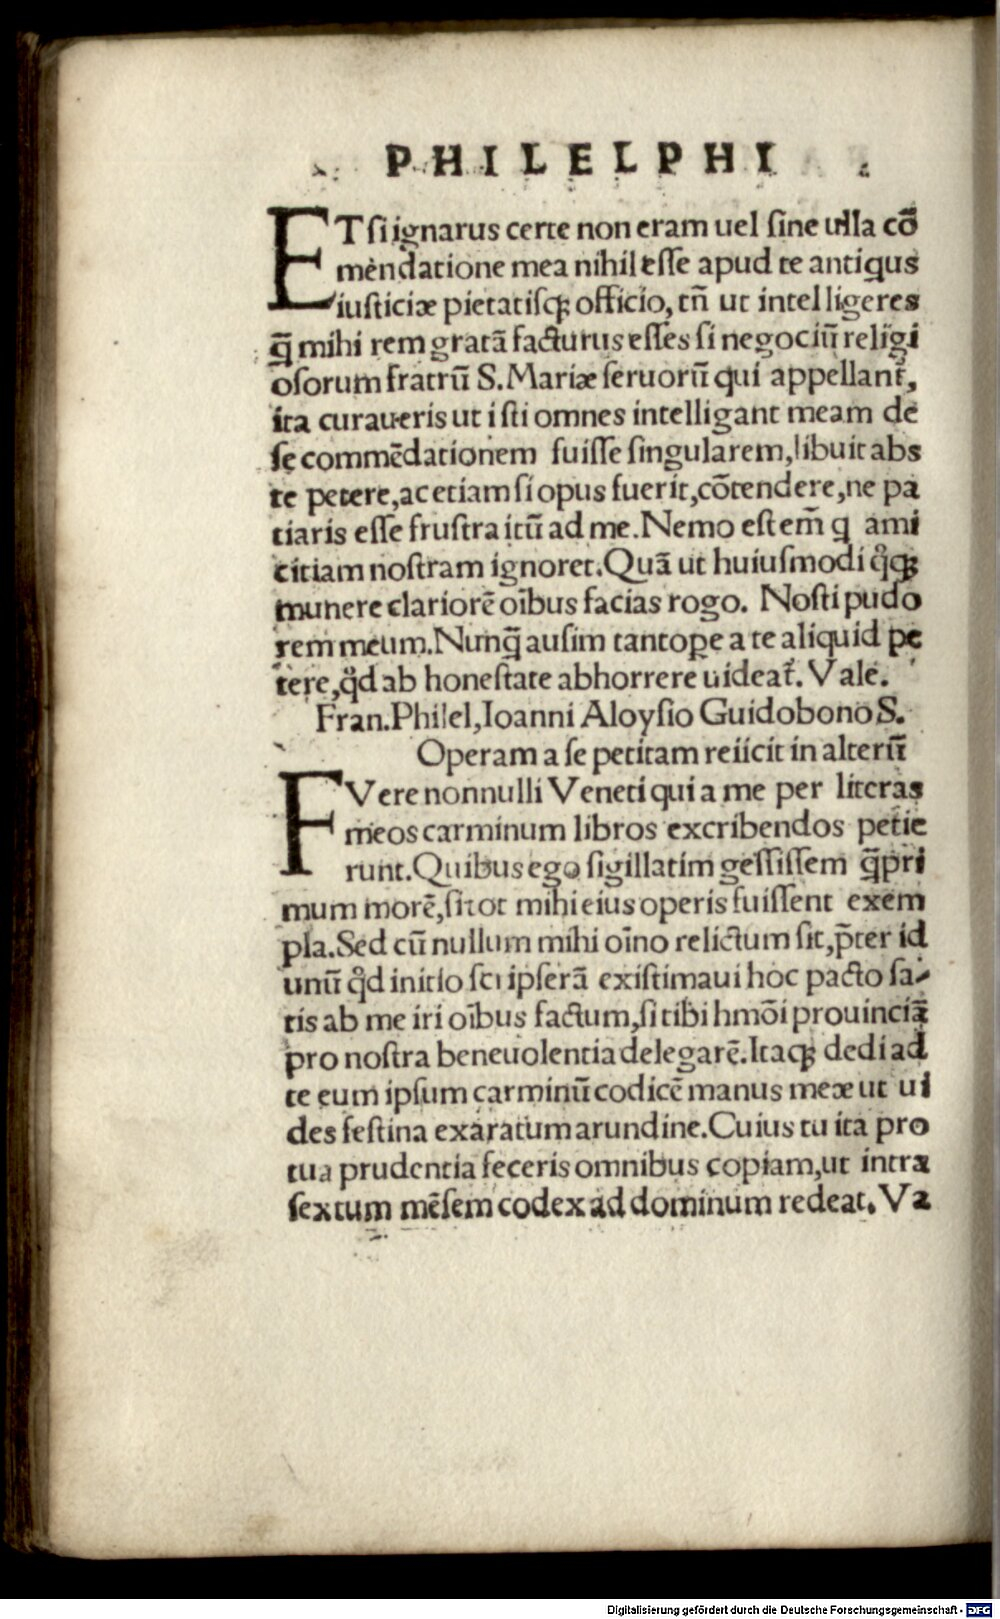 PHILELPHI
ETsi ignarus certe non eram uel sine ulla cõ
mendatione mea nihil esse apud te antiqus
iusticiæ pietatisqꝫ officio, tñ ut intelligeres
q̃ mihi rem gratã facturus esses si negociũ religi
osorum fratrũ S. Mariæ seruorũ qui appellant᷑,
ita curaueris ut isti omnes intelligant meam de
se commẽdationem fuisse singularem, libuit abs
te petere, ac etiam si opus fuerit, cõtendere, ne pa
tiaris esse frustra itũ ad me. Nemo est em̃ q ami
citiam nostram ignoret. Quã ut huiusmodi qͦqꝫ
munere clariorẽ oĩbus facias rogo. Nosti pudo
rem meum. Nunq̃ ausim tantoꝑe a te aliquid pe
tere, qͦd ab honestate abhorrere uideat᷑. Vale.
Fran. Philel, Ioanni Aloysio Guidobono S.
Operam a se petitam reiicit in alterũ
FVere nonnulli Veneti qui a me per literas
meos carminum libros excribendos petie
runt. Quibus ego sigillatim gessissem q̃pri
mum morẽ, si tot mihi eius operis fuissent exem
pla. Sed cũ nullum mihi oĩno relictum sit, p̃ter id
unũ qͦd initio scripserã existimaui hoc pacto sa-
tis ab me iri oĩbus factum, si tibi hmõi prouinciã
pro nostra beneuolentia delegarẽ. Itaqꝫ dedi ad
te eum ipsum carminũ codicẽ manus meæ ut ui
des festina exaratum arundine. Cuius tu ita pro
tua prudentia feceris omnibus copiam, ut intra
sextum mẽsem codex ad dominum redeat. Va
Digitalisierung gefördert durch die Deutsche Forschungsgemeinschaft - DFG